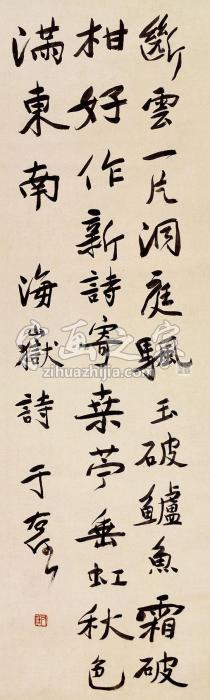 斷雲一片洞庭颿玉破鱸魚霜破
柑好作新詩寄桑苧垂虹秋色
滿東南 海嶽詩 于
字画之家
www.zihuazhijia.com